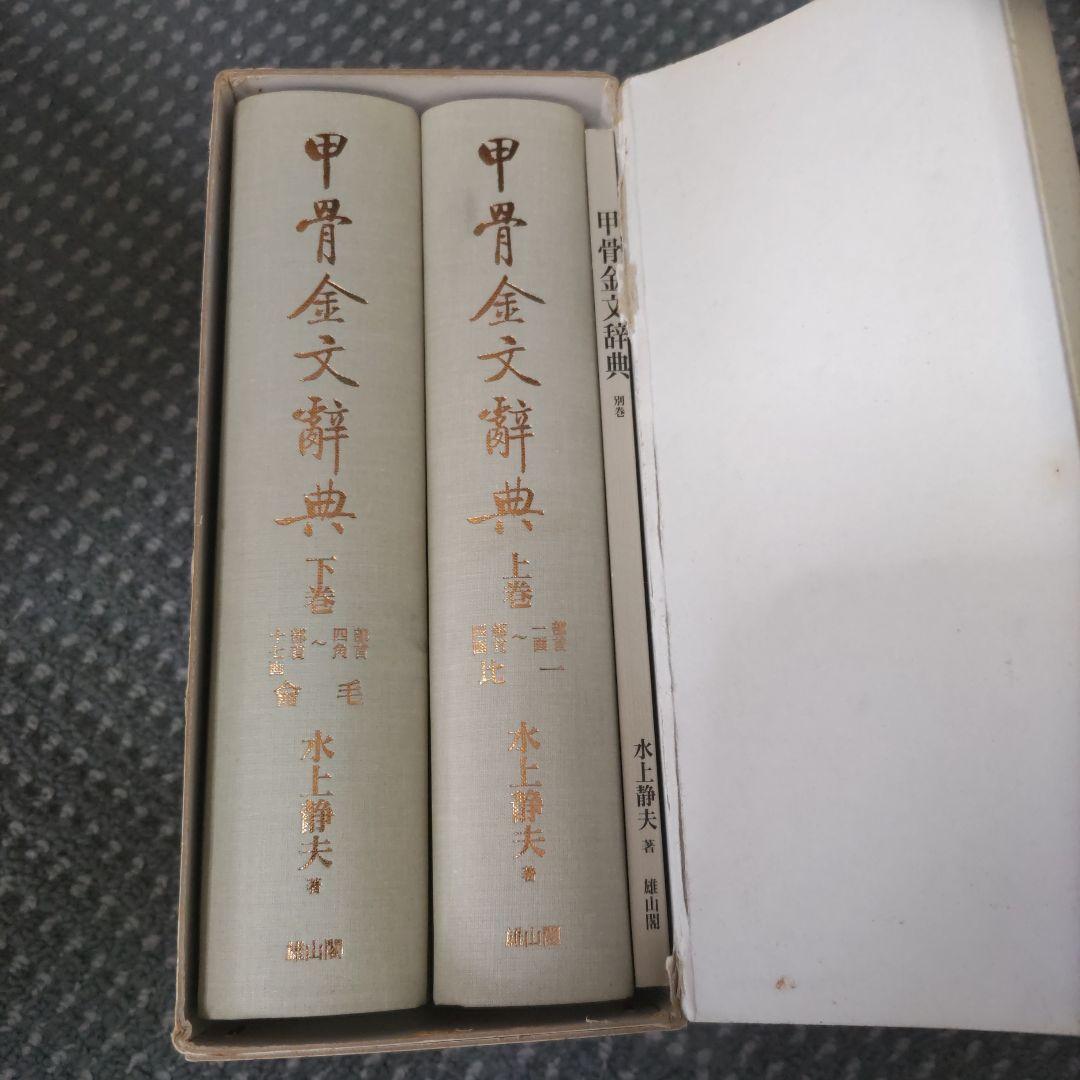 甲骨金文辭典
下巻
部首四画 毛
～
部首十七画 龠
水上静夫 著
雄山閣
甲骨金文辭典
上巻
部首一画 一
～
部首四画 比
水上静夫 著
雄山閣
甲骨金文辞典 別巻
水上静夫 著
雄山閣